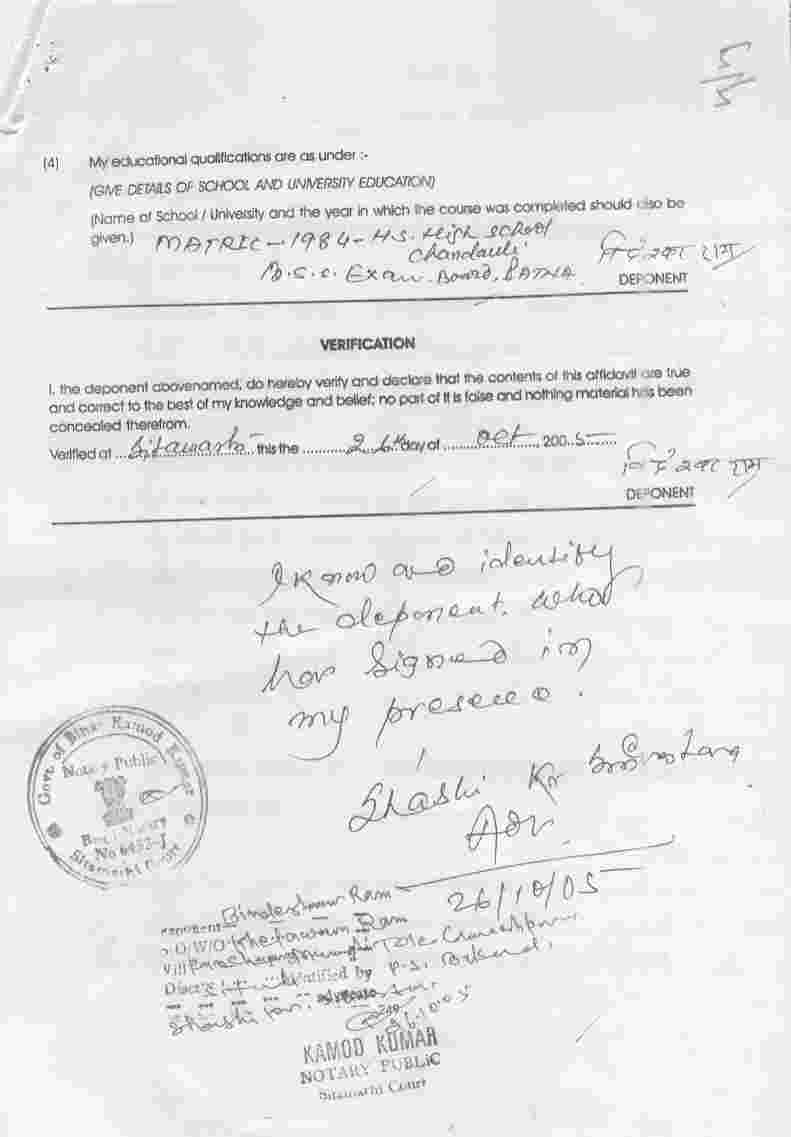 5/5
(4) My educational qualifications are as under :-
(GIVE DETAILS OF SCHOOL AND UNIVERSITY EDUCATION)
(Name of School / University and the year in which the course was completed should also be
given.) MATRIC - 1984 - H.S. High School
Chandauli
B.S.E. Exam. Board, PATNA
DEPONENT
VERIFICATION
I, the deponent abovenamed, do hereby verify and declare that the contents of this affidavit are true
and correct to the best of my knowledge and belief; no part of it is false and nothing material has been
concealed therefrom.
Verified at ... Sitamarhi ... this the ... 26th day of ... Oct ..., 200 5
राम
DEPONENT
I know and identify
the deponent. who
has signed in
my presence.
Shashi Kr
Adv.
26/10/05
Govt of Bihar Kamod Kumar
Notary Public
No 6452-I
Sitamarhi Court
Bindeshwar Ram
Ram
Identified by P.S.
Shashi
KAMOD KUMAR
NOTARY PUBLIC
Sitamarhi Court